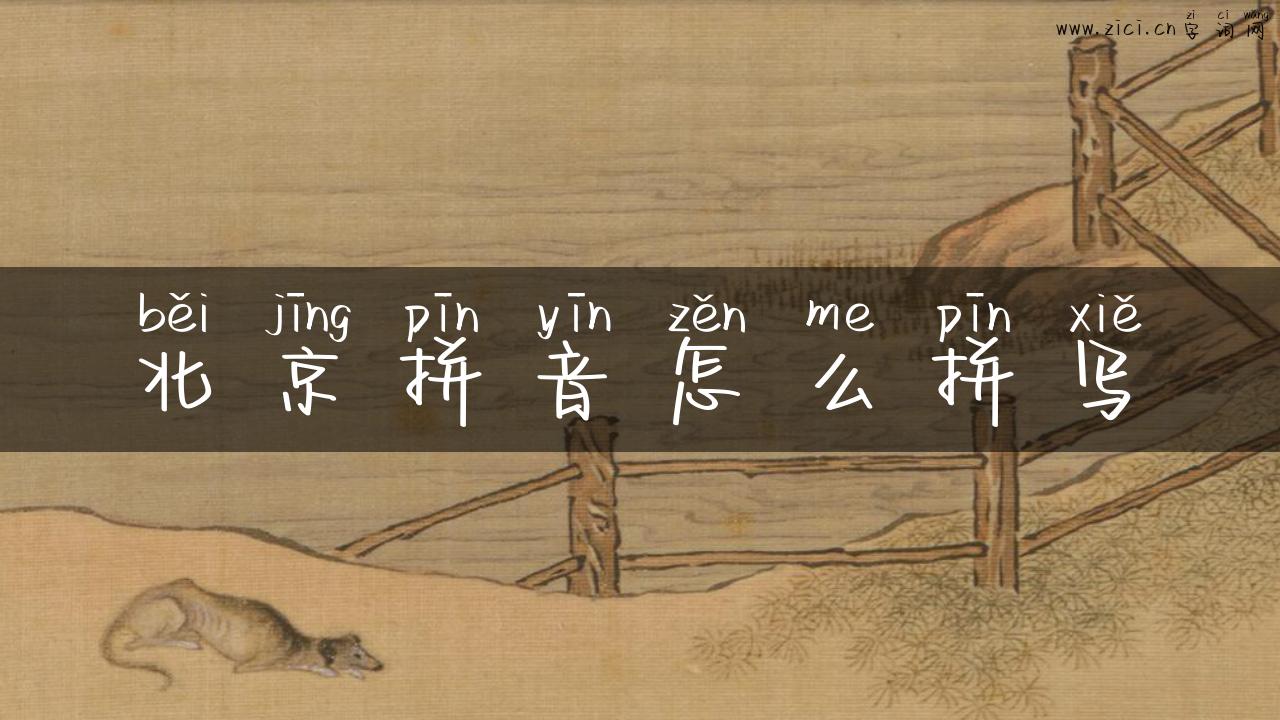 zì cí wǎng
www.zici.cn 字词网
běi jīng pīn yīn zěn me pīn xiě
北京拼音怎么拼写